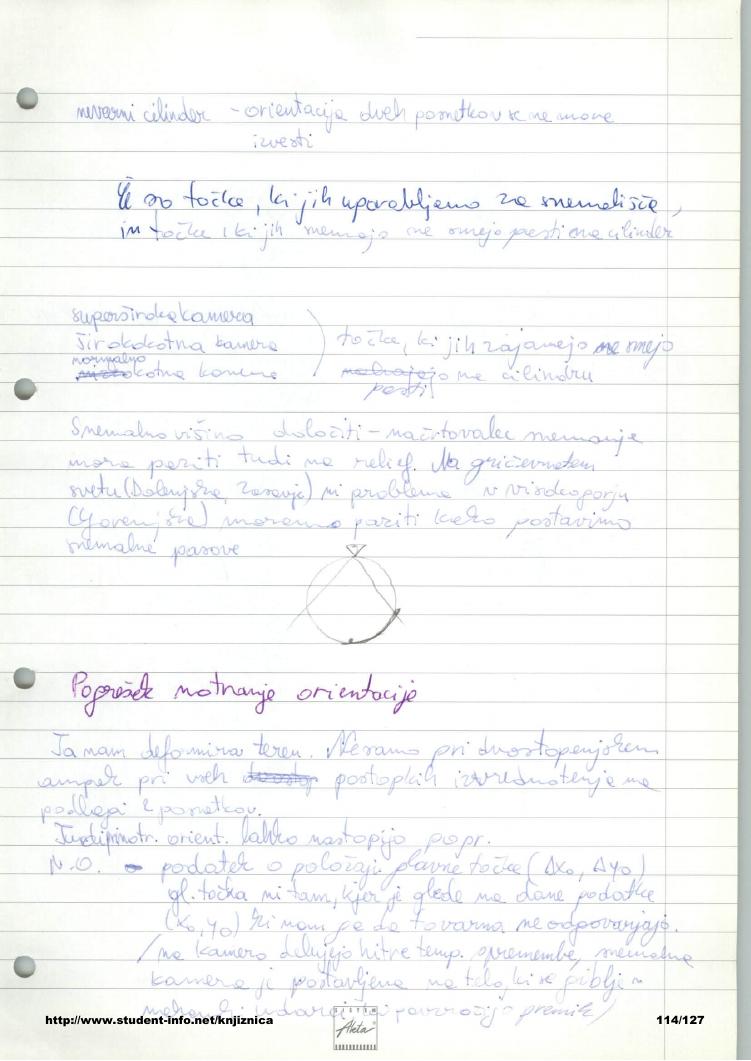 nevarni cilinder - orientacija dveh posnetkov se ne more
izvesti
Če so točke, ki jih uporabljamo za snemališče,
in točke, ki jih snemajo ne smejo pasti na cilinder
superširokakamera
širokokotna kamera
točke, ki jih zajamejo ne smejo
normalno
kotna kamera
pasti
na cilindru
Snemalno višino določiti - načrtovalec snemanje
mora paziti tudi na relief. Na gričevnatem
svetu (Dolenjska, Zasavje) ni problema v visokogorju
(Gorenjska) moramo paziti kako postavimo
snemalne pasove
Pogrešek notranje orientacije
Ta nam deformira teren. Nesamo pri dvostopenjskem
ampak pri vseh postopkih izvrednotenja na
podlagi 2 posnetkov.
Tudi pri notr. orient. lahko nastopijo popr.
N.O. - podatek o položaju glavne točke (Δx₀, Δy₀)
gl. točka ni tam, kjer je glede na dane podatke
(x₀, y₀) ki nam ga da tovarna ne odgovarjajo.
(na kamero delujejo hitre temp. spremembe, snemalna
kamera je postavljena na telo, ki se giblje
povzročijo premik)
http://www.student-info.net/knjiznica
SISTEM
Akta
114/127